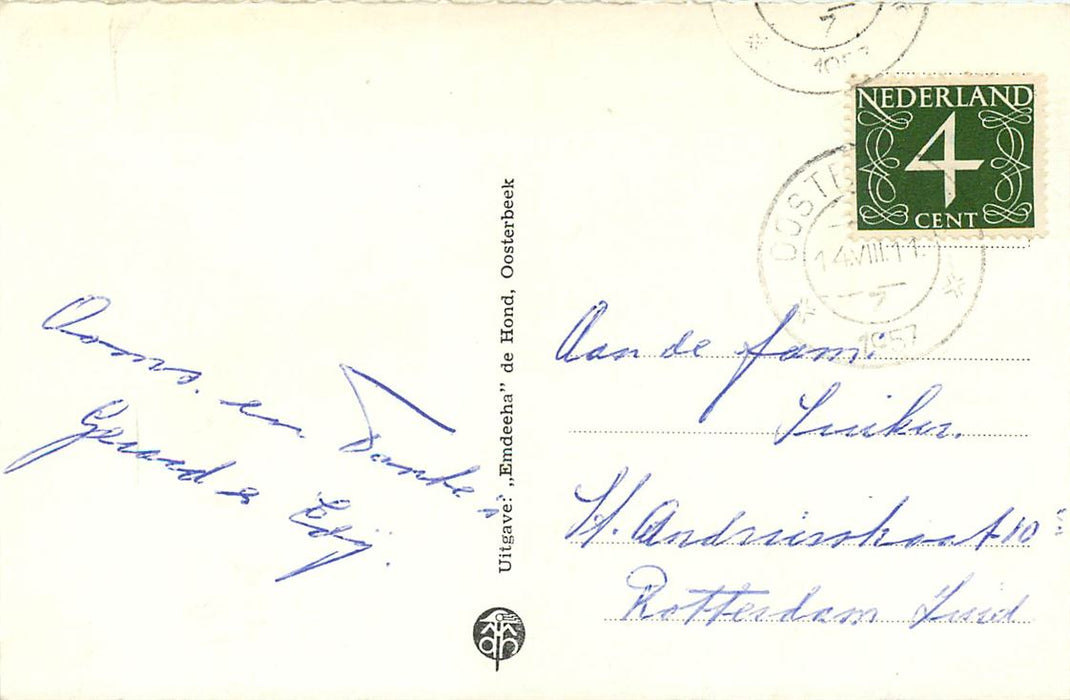 7
NEDERLAND
4
CENT
OOSTE
14.VIII.11.
7
1957
Uitgave: „Emdeeha” de Hond, Oosterbeek
Ooms. en Tante's
Gerard & Edy.
Aan de fam.
Suiker.
St. Andriesstraat 10
Rotterdam Zuid